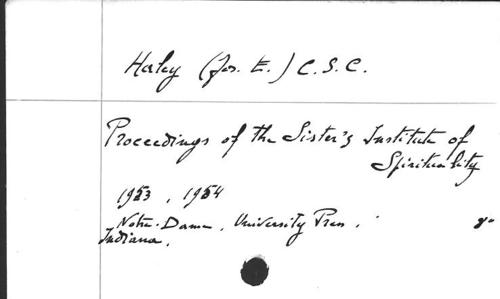 Haley (Jos. E.) C.S.C.
Proceedings of the Sister's Institute of
Spirituality
1953, 1954
Notre-Dame, University Press.
Indiana.